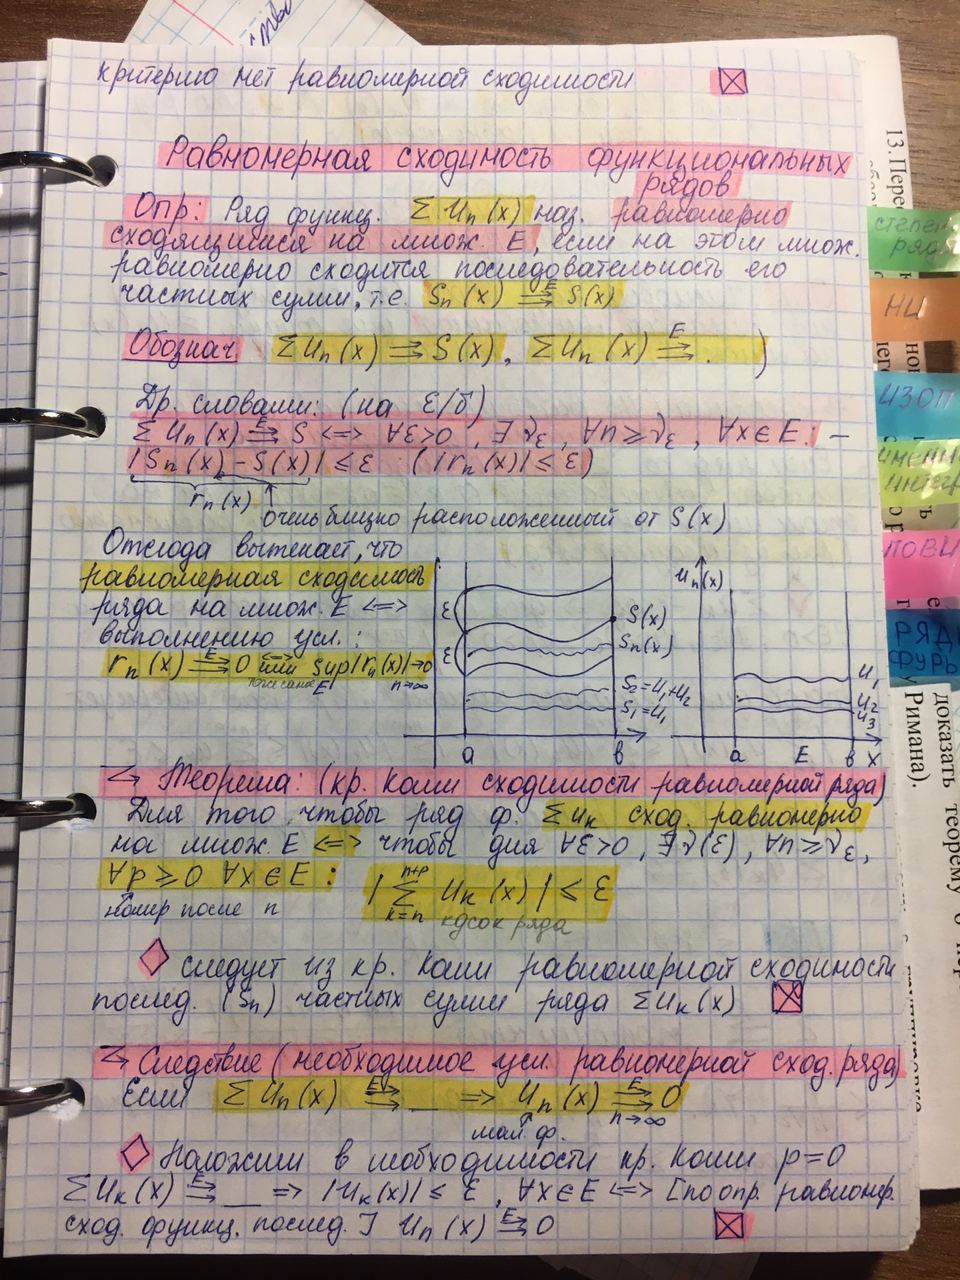 критерию нет равномерной сходимости
Равномерная сходимость функциональных
рядов
Опр: Ряд функц. Σ Un(x) наз. равномерно
сходящимися на множ. E, если на этом множ.
равномерно сходится последовательность его
частных сумм, т.е. Sn(x) ⇉ᴱ S(x)
Обознач. ΣUn(x) ⇉ S(x), ΣUn(x) ⇉ᴱ . )
Др. словами: (на ε/δ)
ΣUn(x) ⇉ᴱ S <=> ∀ε>0, ∃νε, ∀n≥νε, ∀x∈E: –
|Sn(x) – S(x)| ≤ ε (|rn(x)| ≤ ε)
rn(x)
очень близко расположенный от S(x)
Отсюда вытекает, что
равномерная сходимость
ряда на множ. E <=>
выполнению усл.:
rn(x) ⇉ᴱ 0 <=> или sup|rn(x)|→0
E n→∞
ε
ε
S(x)
Sn(x)
S2=U1+U2
S1=U1
a
b
Un(x)
U1
U2
U3
a E b x
Теорема: (кр. Коши сходимости равномерной ряда)
Для того, чтобы ряд ф. ΣUk сход. равномерно
на множ. E <=> чтобы для ∀ε>0, ∃ν(ε), ∀n≥νε,
∀p≥0 ∀x∈E: | n+p Σ k=n Uk(x) | ≤ ε
номер после n кусок ряда
следует из кр. Коши равномерной сходимости
послед. (Sn) частных сумм ряда ΣUk(x)
Следствие (необходимое усл. равномерной сход. ряда)
Если ΣUn(x) ⇉ᴱ __ => Un(x) ⇉ᴱ 0
n→∞
мал. ф.
Положим в необходимости кр. Коши p=0
ΣUk(x) ⇉ᴱ __ => |Uk(x)| ≤ ε, ∀x∈E <=> [по опр. равномер.
сход. функц. послед.] Un(x) ⇉ᴱ 0
13. Пере
степен
ряд
НИ
ИЗОП
ПОВИ
РЯД
ФУРЬ
доказать теорему о
Римана).